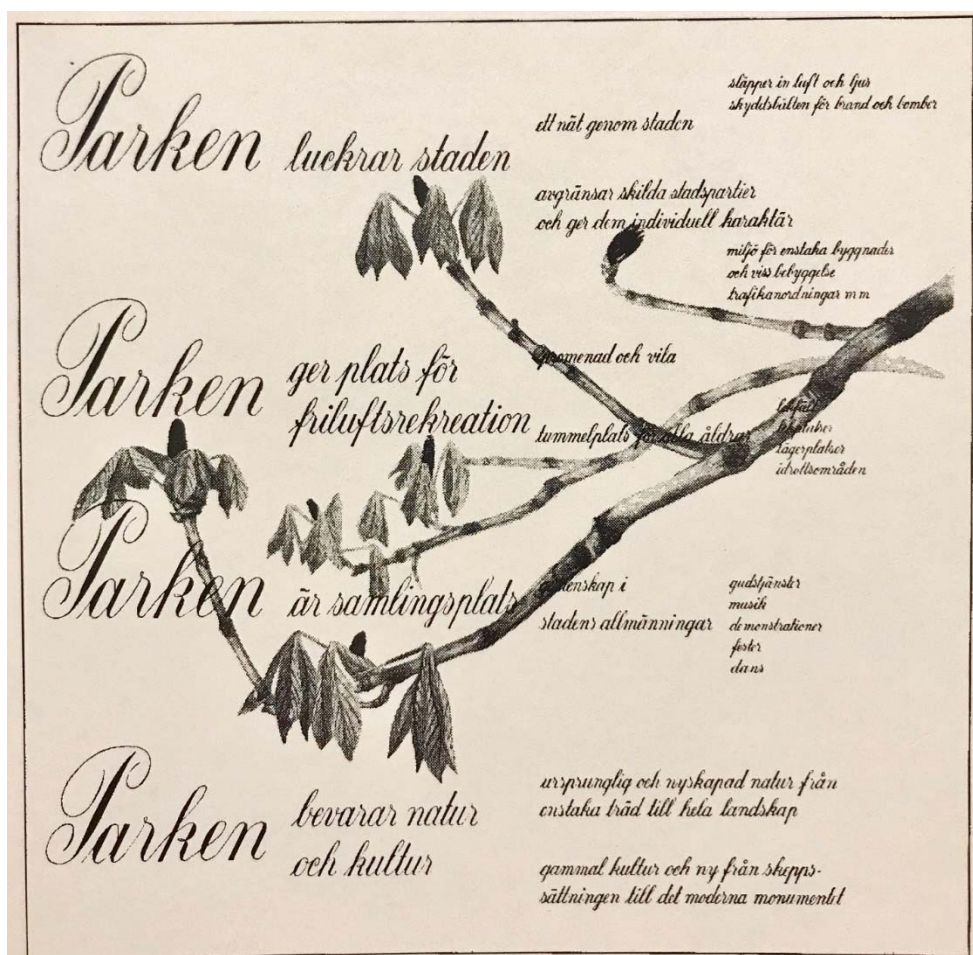 Parken luckrar staden
ett nät genom staden
släpper in luft och ljus
skyddsbälten för brand och bomber
avgränsar skilda stadspartier
och ger dem individuell karaktär
miljö för enstaka byggnader
och viss bebyggelse
trafikanordningar m m
Parken ger plats för
friluftsrekreation
promenad och vila
tummelplats för alla åldrar
lägerplatser
idrottsområden
Parken är samlingsplats
i
stadens allmänningar
gudstjänster
musik
demonstrationer
fester
dans
Parken bevarar natur
och kultur
ursprunglig och nyskapad natur från
enstaka träd till hela landskap
gammal kultur och ny från skepps-
sättningen till det moderna monumentet